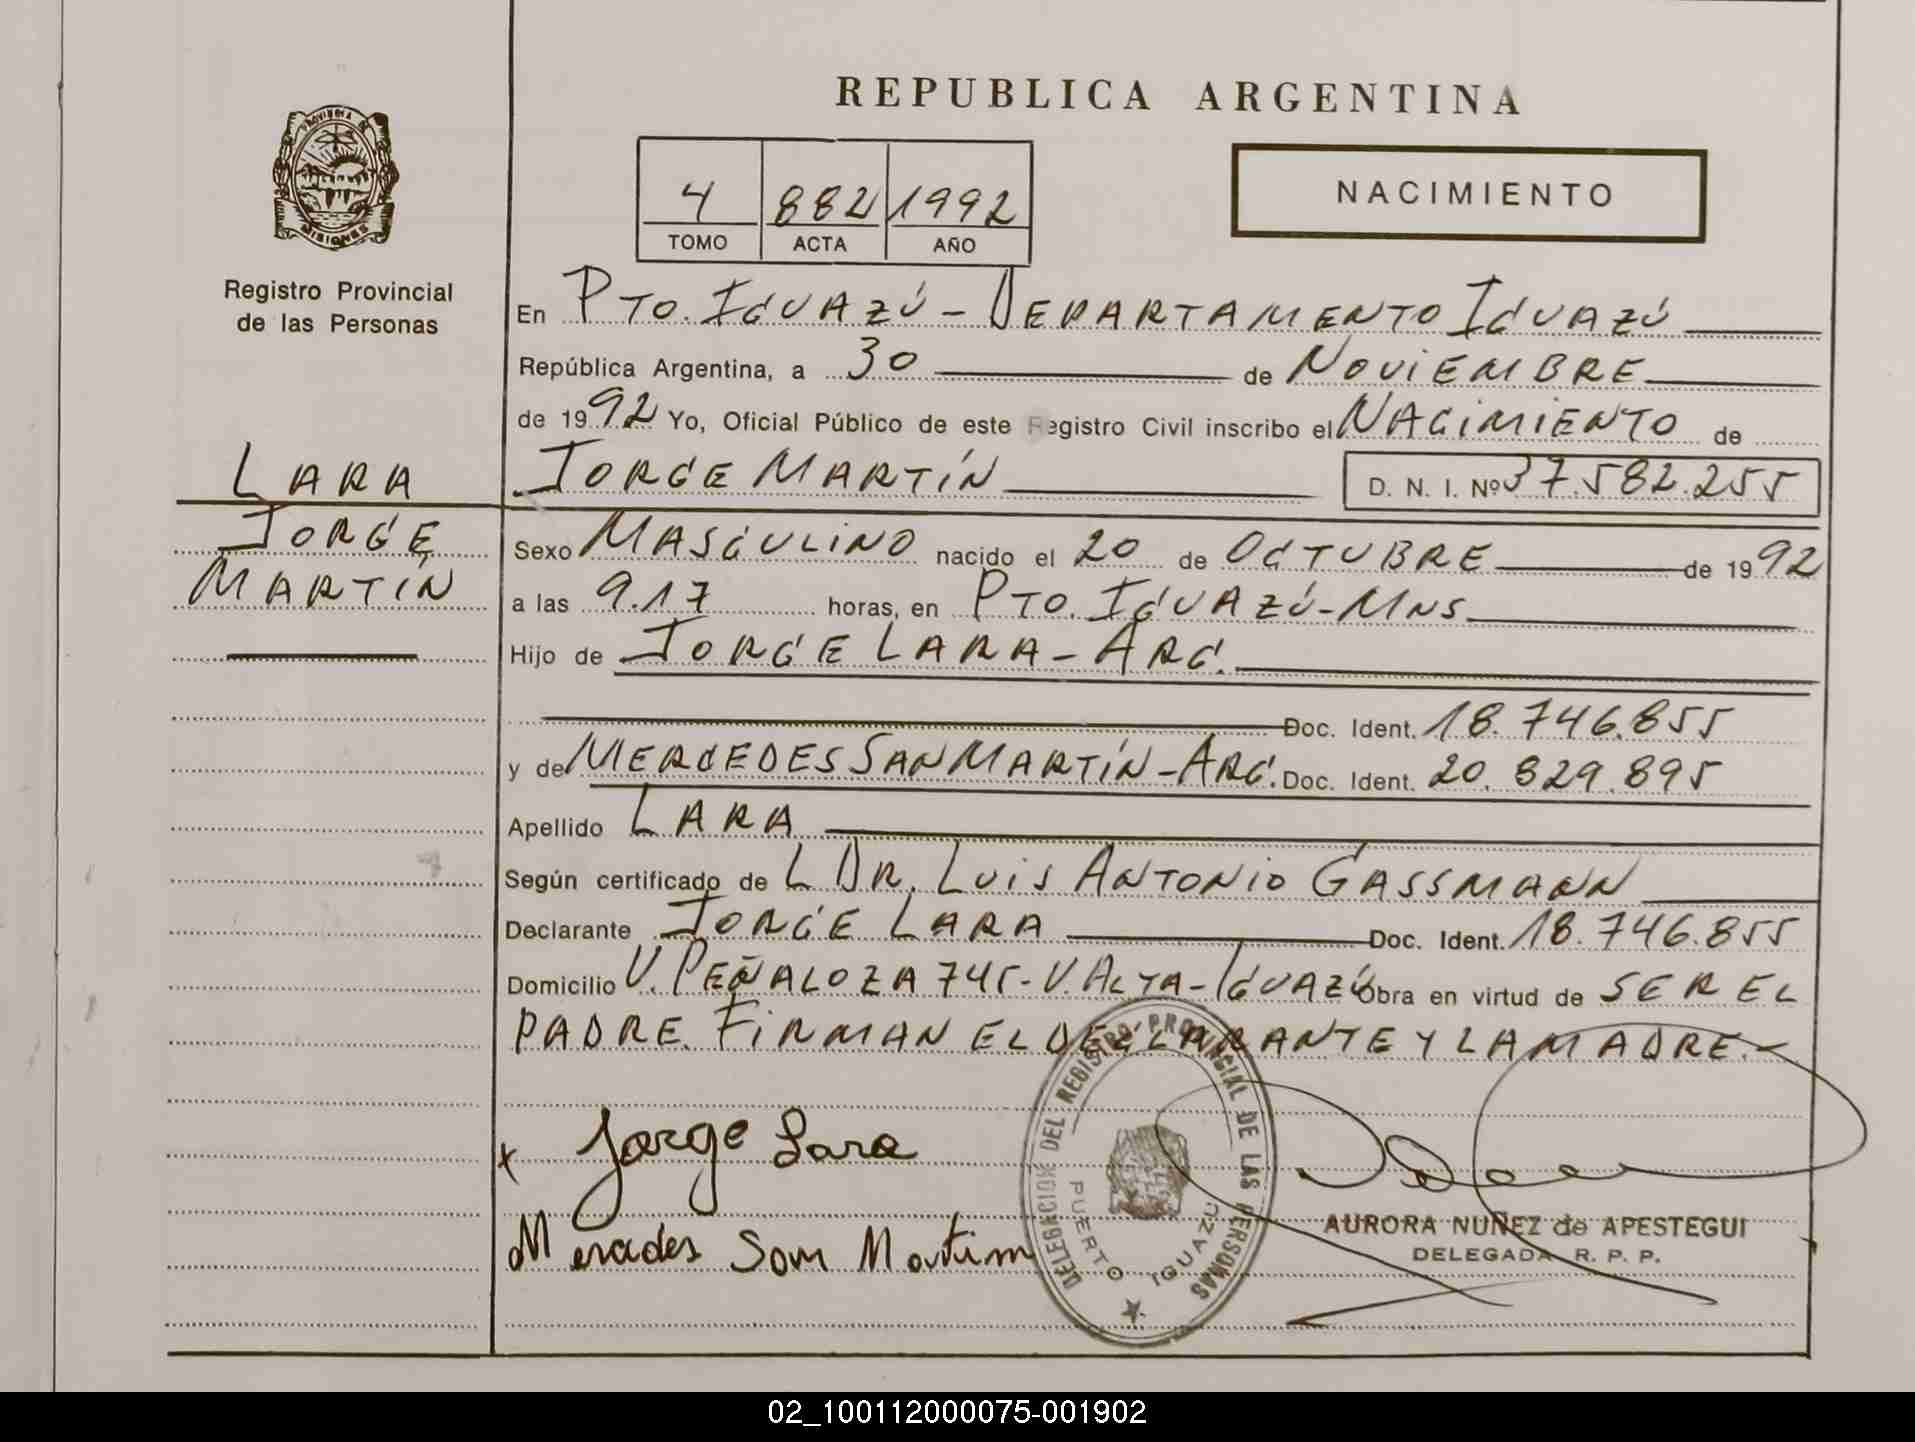 REPUBLICA ARGENTINA
PROVINCIA DE
MISIONES
Registro Provincial
de las Personas
4 882 1992
TOMO ACTA AÑO
NACIMIENTO
En PTO. IGUAZÚ - DEPARTAMENTO IGUAZÚ
República Argentina, a 30 de NOVIEMBRE
de 1992 Yo, Oficial Público de este Registro Civil inscribo el NACIMIENTO de
LARA
JORGE MARTÍN D. N. I. Nº 37.582.255
JORGE
MARTÍN
Sexo MASCULINO nacido el 20 de OCTUBRE de 1992
a las 9.17 horas, en PTO. IGUAZÚ - MNS
Hijo de JORGE LARA - ARG.
Doc. Ident. 18.746.855
y de MERCEDES SAN MARTÍN - ARG. Doc. Ident. 20.829.895
Apellido LARA
Según certificado de L DR. LUIS ANTONIO GASSMANN
Declarante JORGE LARA Doc. Ident. 18.746.855
Domicilio V. PEÑALOZA 745 - V. ALTA - IGUAZÚ Obra en virtud de SER EL
PADRE. FIRMAN EL DECLARANTE Y LA MADRE.-
x Jorge Lara
Mercedes San Martin
DELEGACION DEL REGISTRO PROVINCIAL DE LAS PERSONAS
PUERTO IGUAZU
AURORA NUÑEZ de APESTEGUI
DELEGADA R. P. P.
02_100112000075-001902